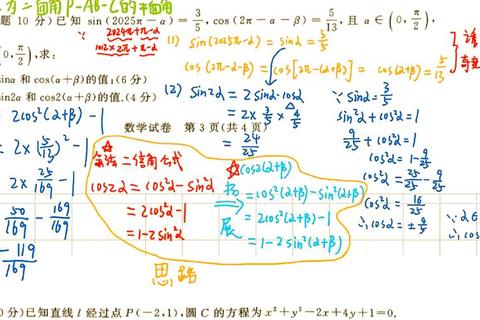 二面角 P-AB-C的平面角
题 10 分)已知 sin(2025π-α)=3/5, cos(2π-α-β)=5/13, 且 α∈(0,π/2),
(0,π/2),求:
∵ 2024π+π-α
1012×2π+π-α
(1) sin(2025π-α)=sinα=3/5
cos(2π-α-β)=cos[2π-(α+β)]=cos(α+β)=5/13
sinα和 cos(α+β)的值;(6 分)
sin2α 和 cos2(α+β)的值.(4 分)
(2) sin2α=2sinα·cosα
=2×3/5×4/5
=24/25
∵ sinα=3/5
sin²α+cos²α=1
9/25+cos²α=1
cos²α=1-9/25
cos²α=25/25-9/25
cos²α=16/25
∴cosα=±4/5
2cos²(α+β)-1
2×(5/13)²-1
2×25/169-1
50/169-169/169
-119/169
数学试卷 第 3 页(共 4 页)
二倍角公式
cos2α=cos²α-sin²α
=2cos²α-1
=1-2sin²α
拓
展
cos2(α+β)
=cos²(α+β)-sin²(α+β)
=2cos²(α+β)-1
=1-2sin²(α+β)
∴cos
思路
0 分)已知直线 l 经过点 P(-2,1),圆 C 的方程为 x²+y²-2x+4y+1=0.